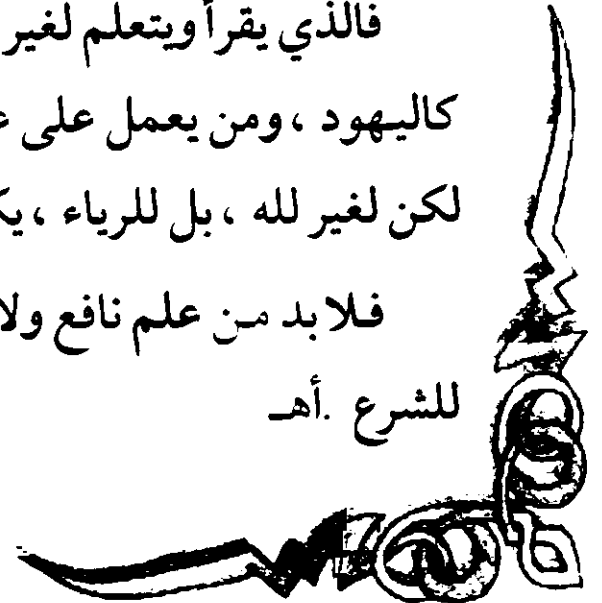 فالذي يقرأ ويتعلم لغير
كاليهود ، ومن يعمل على
لكن لغير لله ، بل للرياء ،
فلا بد من علم نافع
للشرع .أهـ